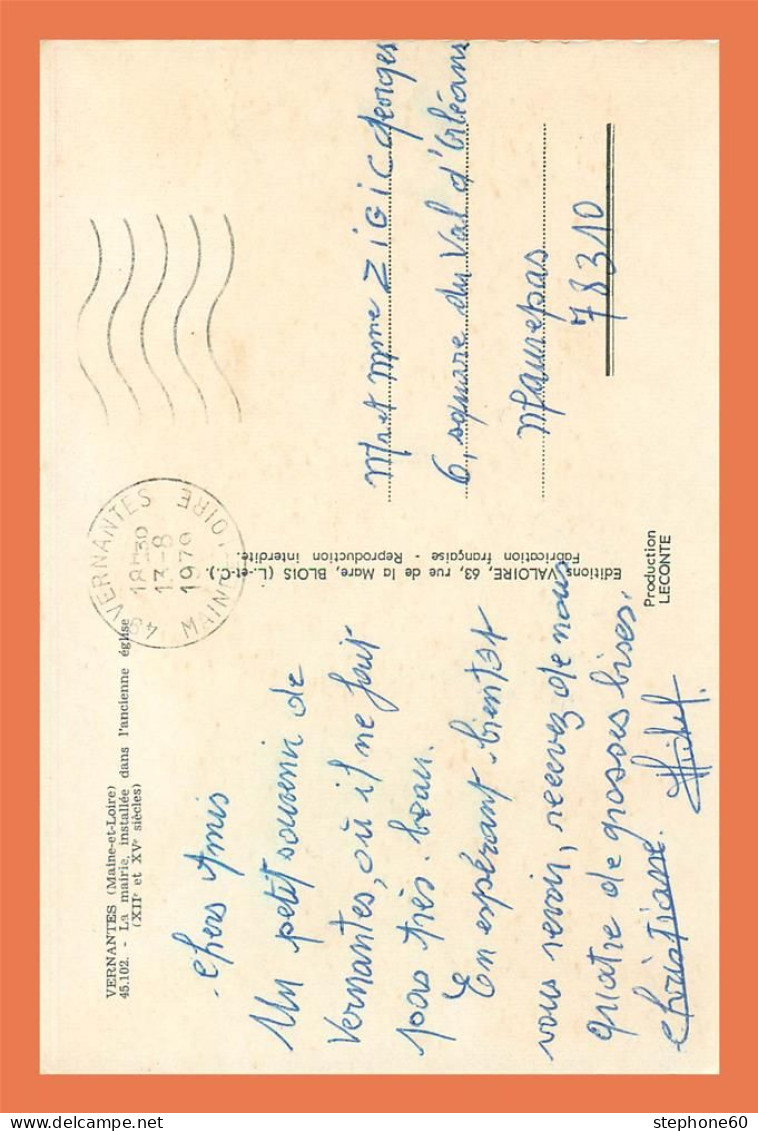 VERNANTES (Maine-et-Loire)
45.102. - La mairie, installée dans l'ancienne église
(XIIe et XVe siècles)
49 VERNANTES
18H30
13-8
1979
MAINE LOIRE
Chers Amis
Un petit souvenir de
Vernantes, où il ne fait
pas très beau.
En espérant bientot
vous revoir, recevez de nous
quatre de grosses bises.
Christiane. Michel.
Editions VALOIRE, 63, rue de la Mare, BLOIS (L.-et-C.).
Fabrication française - Reproduction interdite.
Production
LECONTE
Mr et Mme ZIGIC Georges
6, square du Val d'Orléans
Maurepas
78310
stephone60